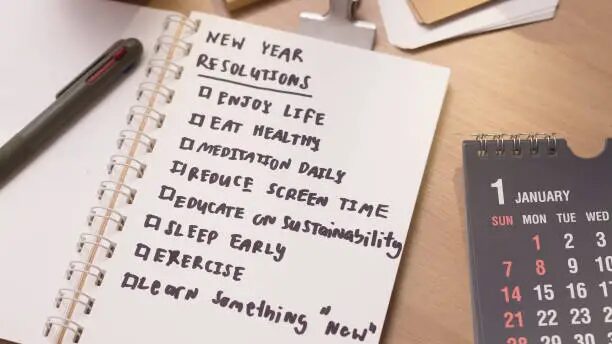 NEW YEAR
RESOLUTIONS
☐ ENJOY LIFE
☐ EAT HEALTHY
☐ MEDITATION DAILY
☐ REDUCE SCREEN TIME
☐ EDUCATE ON SUSTAINABILITY
☐ SLEEP EARLY
☐ EXERCISE
☐ Learn something "New"
1 JANUARY
SUN MON TUE WED
1 2 3
7 8 9 10
14 15 16 17
21 22 23 24
28 29 30